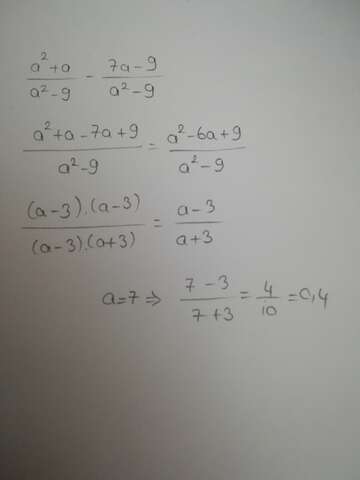 (a²+a)/(a²-9) - (7a-9)/(a²-9)
(a²+a-7a+9)/(a²-9) = (a²-6a+9)/(a²-9)
((a-3).(a-3))/((a-3).(a+3)) = (a-3)/(a+3)
a=7 ⇒ (7-3)/(7+3) = 4/10 = 0,4